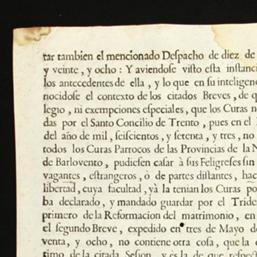 tar tambien el mencionado Despacho de diez de
y veinte, y ocho: Y aviendose visto esta instanci
los antecedentes de ella, y lo que en su inteligen
nocidose el contexto de los citados Breves, de q
legio, ni exempciones especiales, que los Curas n
das por el Santo Concilio de Trento, pues en el
del año de mil, seiscientos, y setenta, y tres, no
todos los Curas Parrocos de las Provincias de la N
de Barlovento, pudiesen casar à sus Feligreses sin
vagantes, estrangeros, ò de partes distantes, hac
libertad, cuya facultad, yà la tenian los Curas po
ba declarado, y mandado guardar por el Tride
primero de la Reformacion del matrimonio, en
el segundo Breve, expedido en tres de Mayo d
venta, y ocho, no contiene otra cosa, que la
timo de la citada Sesion, y es la de que respect